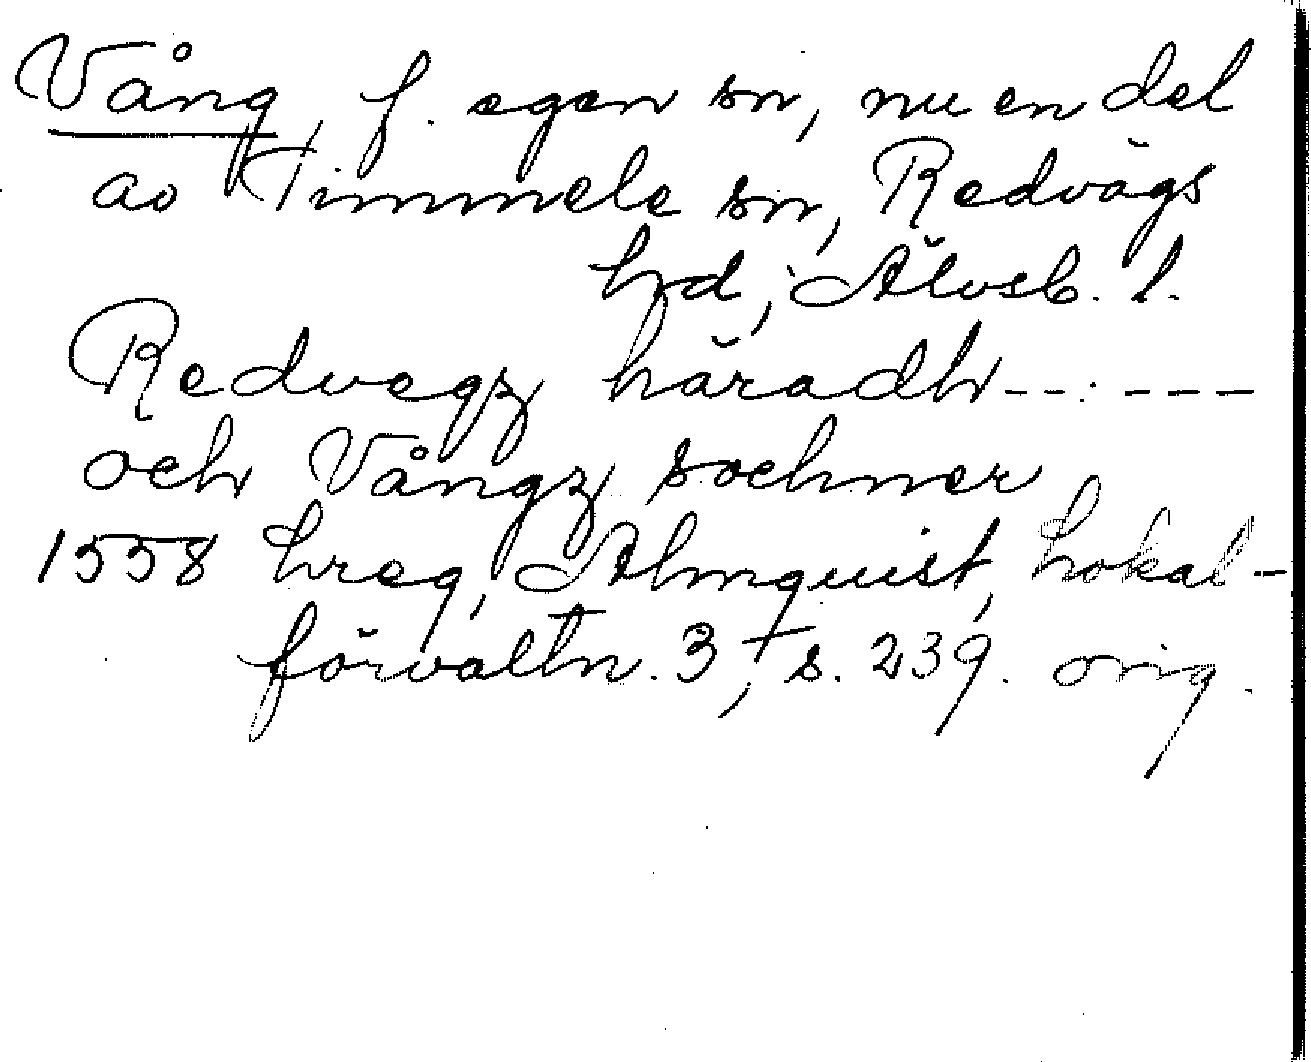 Vång, f. egen sn, nu en del
av Timmele sn, Redvägs
hd, Älvsb. l.
Redvegz häradh - - : - - -
och Vångz sochner,
1558 hreg, Almquist, Lokal-
förvaltn. 3, s. 239. orig.